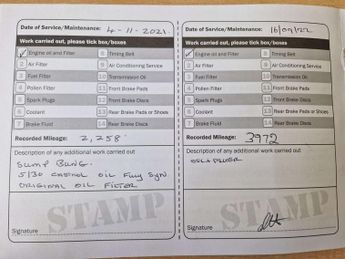 Date of Service/Maintenance: 4-11-2021.
Work carried out, please tick box/boxes
Engine oil and Filter
8 Timing Belt
2 Air Filter
9 Air Conditioning Service
3 Fuel Filter
10 Transmission Oil
4 Pollen Filter
11 Front Brake Pads
5 Spark Plugs
12 Front Brake Discs
6 Coolant
13 Rear Brake Pads or Shoes
7 Brake Fluid
14 Rear Brake Discs
Recorded Mileage: 2,258
Description of any additional work carried out
SUMP BUNG.
5/30 CASTROL OIL FULLY SYN.
ORIGINAL OIL FILTER
STAMP
Signature
Date of Service/Maintenance: 16/09/22
Work carried out, please tick box/boxes
Engine oil and Filter
8 Timing Belt
2 Air Filter
9 Air Conditioning Service
3 Fuel Filter
10 Transmission Oil
4 Pollen Filter
11 Front Brake Pads
5 Spark Plugs
12 Front Brake Discs
6 Coolant
13 Rear Brake Pads or Shoes
7 Brake Fluid
14 Rear Brake Discs
Recorded Mileage: 3972
Description of any additional work carried out
STAMP
Signature